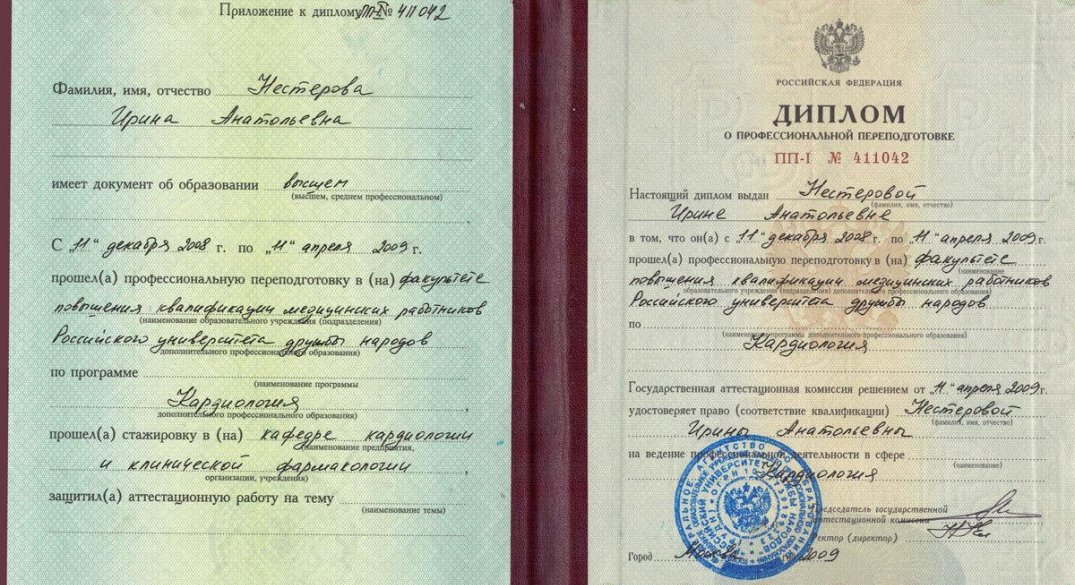 Приложение к диплому ПП-I № 411042
Фамилия, имя, отчество Нестерова
Ирина Анатольевна
имеет документ об образовании высшем
(высшем, среднем профессиональном)
С „11“ декабря 2008 г. по „11“ апреля 2009 г.
прошел(а) профессиональную переподготовку в (на) факультете
повышения квалификации медицинских работников
(наименование образовательного учреждения (подразделения)
Российского университета дружбы народов
дополнительного профессионального образования)
по программе
(наименование программы
Кардиология
дополнительного профессионального образования)
прошел(а) стажировку в (на) кафедре кардиологии
(наименование предприятия,
и клинической фармакологии
организации, учреждения)
защитил(а) аттестационную работу на тему
(наименование темы)
РОССИЙСКАЯ ФЕДЕРАЦИЯ
ДИПЛОМ
О ПРОФЕССИОНАЛЬНОЙ ПЕРЕПОДГОТОВКЕ
ПП-I № 411042
Настоящий диплом выдан Нестеровой
(фамилия, имя, отчество)
Ирине Анатольевне
в том, что он(а) с „11“ декабря 2008 г. по „11“ апреля 2009 г.
прошел(а) профессиональную переподготовку в (на) факультете
(наименование
повышения квалификации медицинских работников
образовательного учреждения (подразделения) дополнительного профессионального образования)
Российского университета дружбы народов
по
(наименование программы дополнительного профессионального образования)
Кардиология
Государственная аттестационная комиссия решением от „11“ апреля 2009 г.
удостоверяет право (соответствие квалификации) Нестеровой
(фамилия, имя, отчество)
Ирины Анатольевны
на ведение профессиональной деятельности в сфере
(наименование)
Кардиология
Председатель государственной
аттестационной комиссии
Ректор (директор)
Город Москва 2009